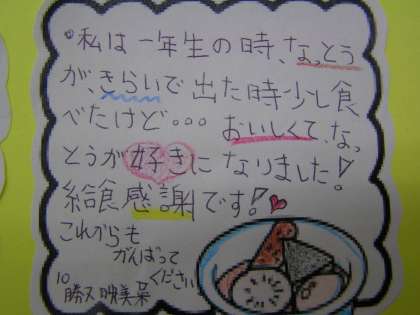 私は一年生の時、なっとう
が、きらいで出た時少し食
べたけど。。。おいしくて、なっ
とうが好きになりました!
給食感謝です!
これからも
がんばって
ください
10